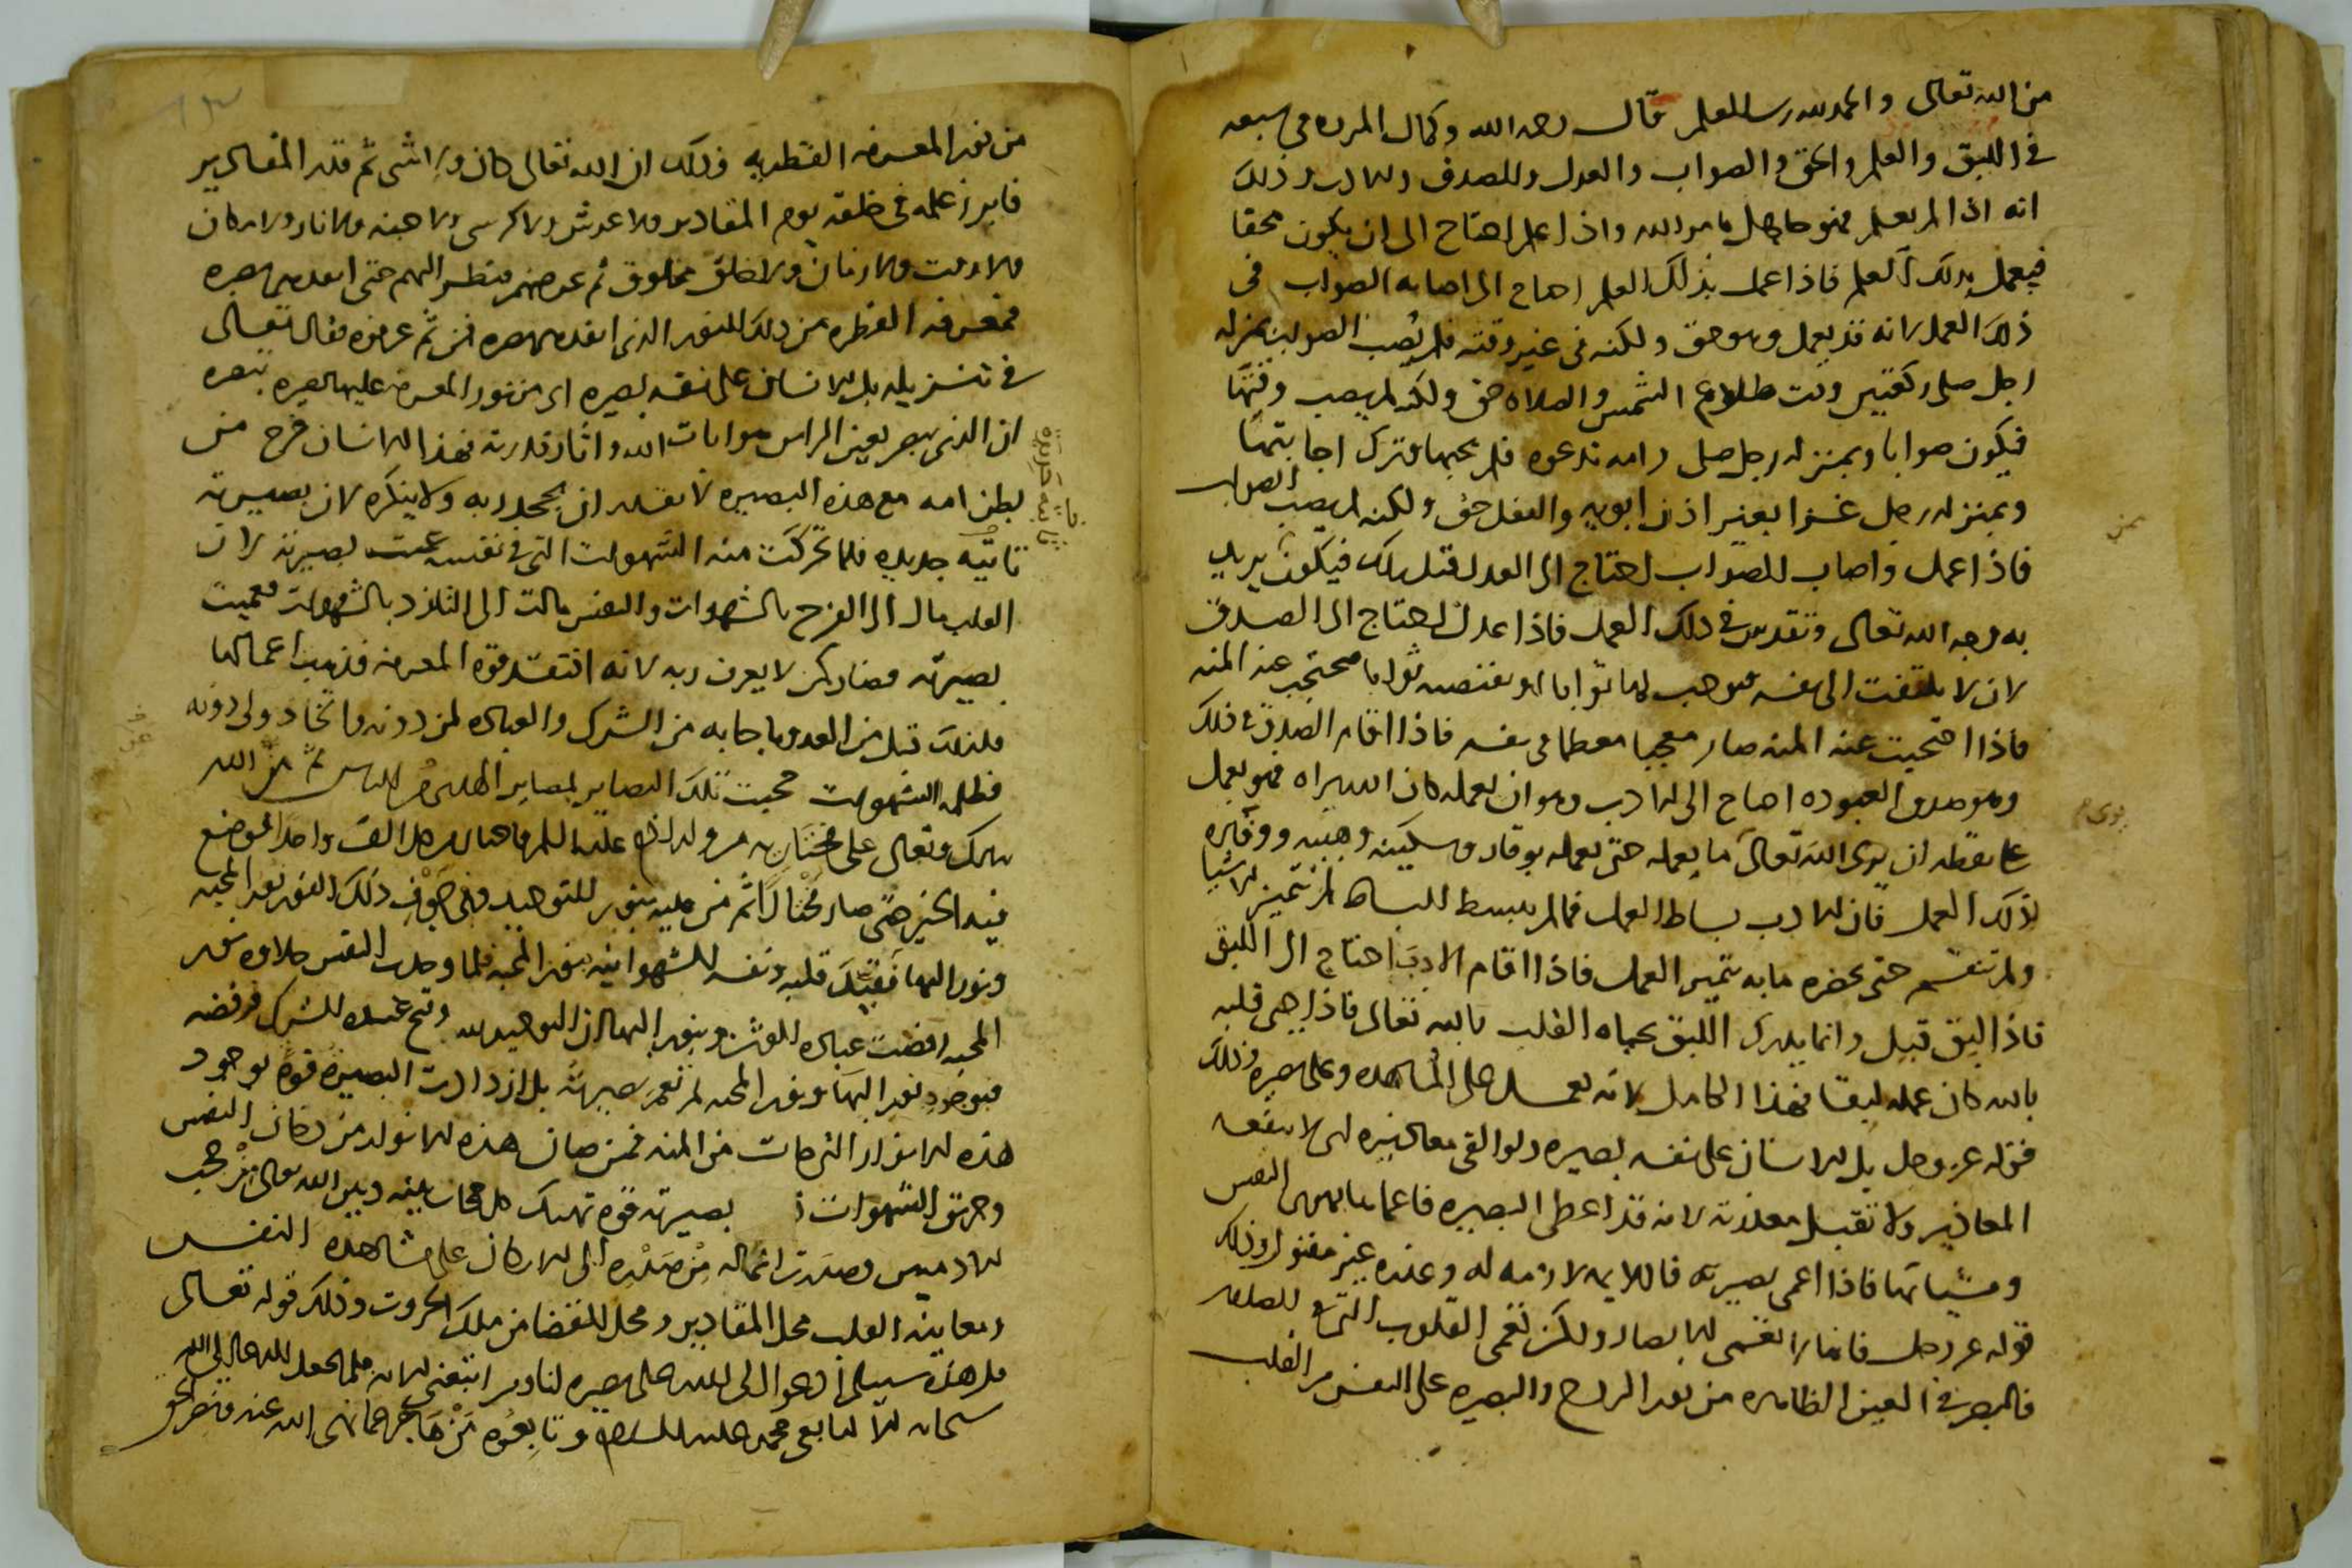 من الله تعالى والحمد لله رب العلم قال رحمه الله وكمال المرء في سبعه
في اللبق والعلم والحق والصواب والعدل والصدق والادب وذلك
انه اذا لم يعلم فهو جاهل بامر الله واذا علم احتاج الى ان يكون محقا
فيعمل بذلك العلم فاذا عمل بذلك العلم احتاج الى اصابه الصواب في
ذلك العمل لانه قد يعمل وهو حق ولكنه في غير وقته فلم يصب الصواب بمنزله
رجل صلى ركعتين وقت طلوع الشمس والصلاه حق ولكنه لم يصب وقتها
فيكون صوابا وبمنزله رجل صلى وامه تدعوه فلم يجبها فترك اجابتها
وبمنزله رجل غزا بغير اذن ابويه والفعل حق ولكنه لم يصب الصواب
فاذا عمل واصاب الصواب احتاج الى العدل قبل ذلك فيكون يريد
به وجه الله تعالى وتقدس في ذلك العمل فاذا عدل احتاج الى الصدق
لان لا يلتفت الى نفسه فيوجب لها ثوابا او يقتضيه ثوابا فتحتجب عنه المنه
فاذا احتجبت عنه المنه صار معجبا معظما في نفسه فاذا اقام الصدق في ذلك
وهو صدق العبوده احتاج الى الادب وهو ان يعمله كان الله يراه فهو يعمل
على يقظه ان يرى الله تعالى ما يعمله حتى يعمله بوقار وسكينه وهيبه
لذلك العمل فان الادب بساط العمل فما لم يبسط البساط لم تتميز الاشيا
ولم تنقسم حتى يحضره ما به يتميز العمل فاذا اقام الادب احتاج الى اللبق
فاذا لبق قبل وانما يدرك اللبق بحياه القلب بالله تعالى فاذا حيي قلبه
بالله كان عمله لبقا فهذا الكامل لانه يعمل على المشاهده وعلى بصيره وذلك
قوله عز وجل بل الانسان على نفسه بصيره ولو القى معاذيره اي لا ينفعه
المعاذير ولا تقبل معذرته لانه قد اعطي البصيره فاعماها بهوى النفس
ومشياتها فاذا اعمى بصيرته فاللايمه لازمه له وعذره غير مقبول وذلك
قوله عز وجل فانها لا تعمى الابصار ولكن تعمى القلوب التي في الصدور
فالبصر في العين الظاهره من نور الروح والبصيره على النفس من القلب
من نور المعرفه الفطريه وذلك ان الله تعالى كان ولا شي ثم قدر المقادير
فابرز علمه في خلقه يوم المقادير ولا عرش ولا كرسي ولا جنه ولا نار ولا مكان
ولا وقت ولا زمان ولا خلق مخلوق ثم عرضهم فنظر اليهم حتى انفدهم بصره
فمعرفه الفطره من ذلك النور الذي انفدهم بصره فمن ثم عرفوه فقال تعالى
في تنزيله بل الانسان على نفسه بصيره اي من نور المعرفه عليها بصيره تبصره
ان الذي يبصر بعين الراس هو ايات الله واثار قدرته فهذا الانسان خرج من
بطن امه مع هذه البصيره لا يقدر ان يجحد ربه ولا ينكره لان بصيرته
ثابته جديده فلما تحركت منه الشهوات التي في نفسه عميت بصيرته لان
القلب مال الى الفرح بالشهوات والنفس مالت الى التلذذ بالشهوات فعميت
بصيرته فصار كمن لا يعرف ربه لانه افتقد قوه المعرفه فذهب اعمالها
فلذلك قبل من العدو ما جا به من الشرك والعباده لمن دونه واتخاذ ولي دونه
فظلمه الشهوات حجبت تلك البصاير لمصاير اهلها في الناس ثم من الله
تبارك وتعالى على مختاريه من ولد ادم عليه السلم فاختار من كل الف واحدا لموضع
فيه الخير حتى صار مختارا ثم من عليه بنور التوحيد وفي جوف ذلك النور نور المحبه
ونور البها فقيد قلبه ونفسه الشهوانيه بنور المحبه فلما وجدت النفس حلاوه نور
المحبه رفضت عباده الوثن وبنور البها زان التوحيد لله وقبح عنده الشرك فرفضه
فبوجود نور البها ونور المحبه لم تعم بصيرته بل ازدادت البصيره قوه بوجود
هذه الانوار التي جات من المنه فمن صان هذه الانوار من دخان النفس
وحريق الشهوات بصيرته قوه تهتك كل حجاب بينه وبين الله تعالى من حجب
الادميين وصدرت اعماله من صدره الى الاركان على مشاهده النفس
ومعاينه القلب محل المقادير ومحل القضا من ملك الجبروت وذلك قوله تعالى
قل هذه سبيلي ادعوا الى الله على بصيره انا ومن اتبعني الايه فلم يجعل الدعا الى الله
سبحانه الا لتابعي محمد عليه السلام وتابعوه من هاجر عما نهى الله عنه